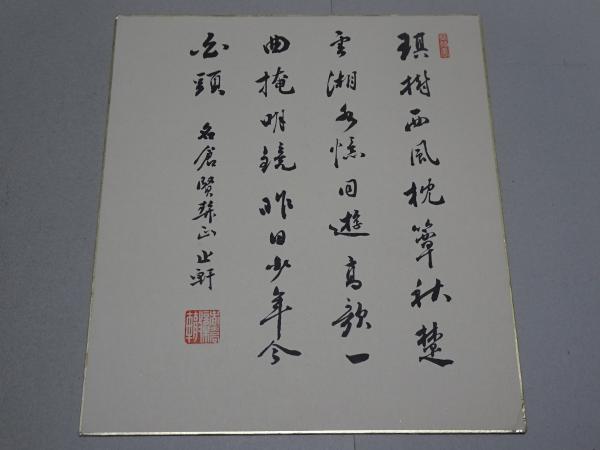 琪樹西風枕簟秋楚
雲湘水憶同遊高歌一
曲掩明鏡昨日少年今
白頭
名倉賢契正 止軒